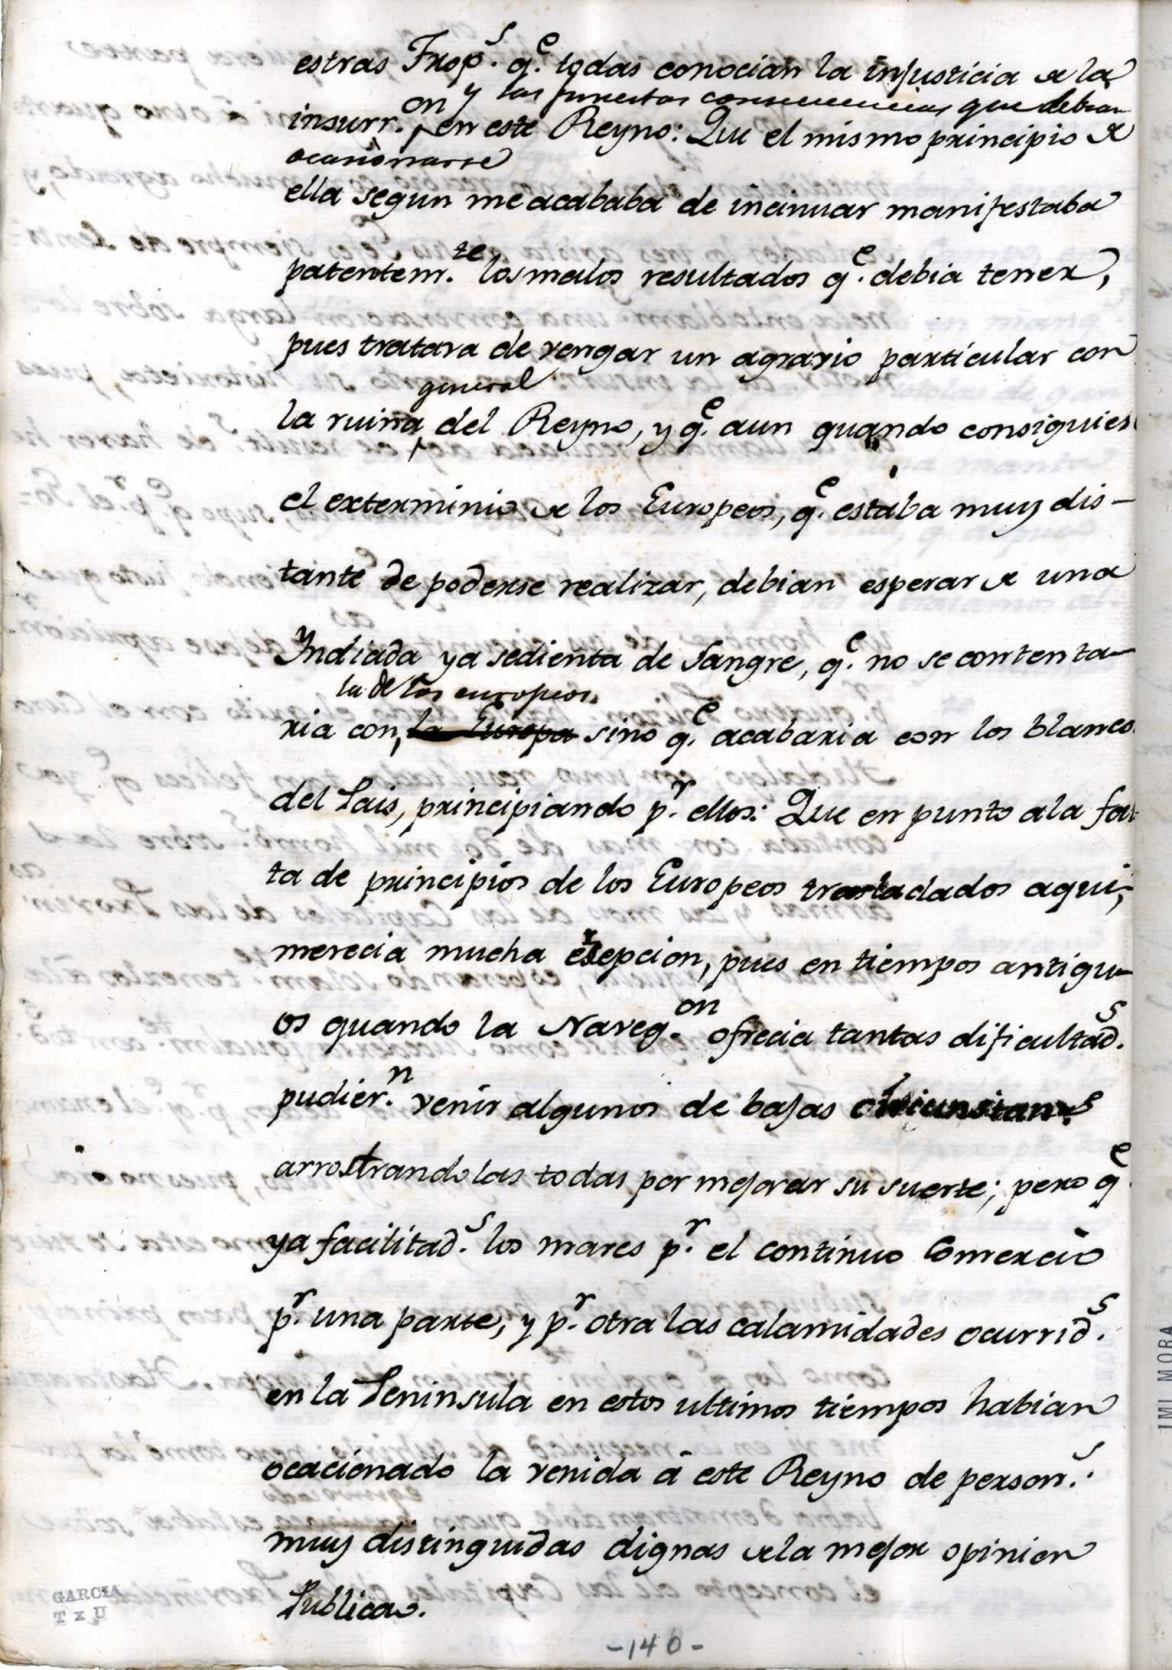 estras Trop.s q.e todas conocian la injusticia de la
on y las funestas consecuencias que debian
insurr. en este Reyno: Que el mismo principio de
ocasionarse
ella segun me acababa de incinuar manifestaba
patentem.te los malos resultados q.e debia tener,
pues tratara de vengar un agravio particular con
general
la ruina del Reyno, y q.e aun quando consiguies
el exterminio de los Europeos, q.e estaba muy dis-
tante de poderse realizar, debian esperar de una
Indiada ya sedienta de Sangre, q.e no se contenta-
la de los europeos
ria con, la Europa sino q.e acabaria con los blanco
del Pais, principiando p.r ellos: Que en punto a la fal
ta de principios de los Europeos trasladados aqui,
merecia mucha esepcion, pues en tiempos antigu-
os quando la Naveg.on ofrecia tantas dificultad.s
pudier.n venir algunos de bajas circunstan.s
arrostrandolas todas por mejorar su suerte; pero q.e
ya facilitad.s los mares p.r el continuo Comercio
p.r una parte, y p.r otra las calamidades ocurrid.s
en la Peninsula en estos ultimos tiempos habian
ocacionado la venida á este Reyno de person.s
muy distinguidas dignas de la mejor opinion
Publica.
GARCIA
-140-
IMI MORA